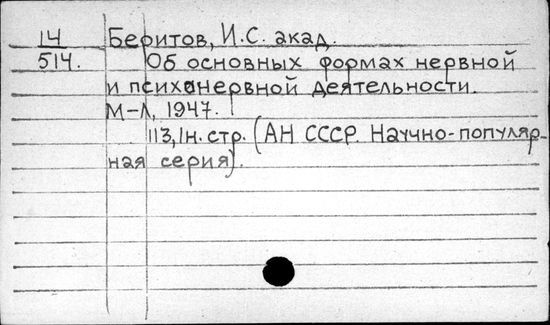 14 Беритов, И.С. акад.
514. Об основных формах нервной
и психонервной деятельности.
М-Л, 1947.
113,1н.стр. (АН СССР. Научно-популяр-
ная серия).